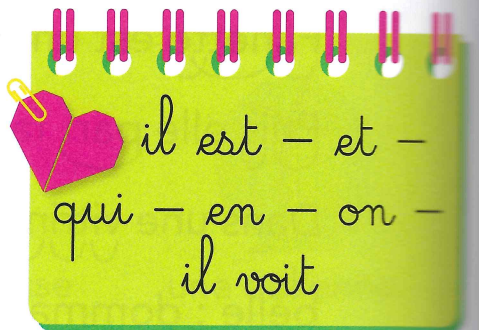 il est – et –
qui – en – on –
il voit